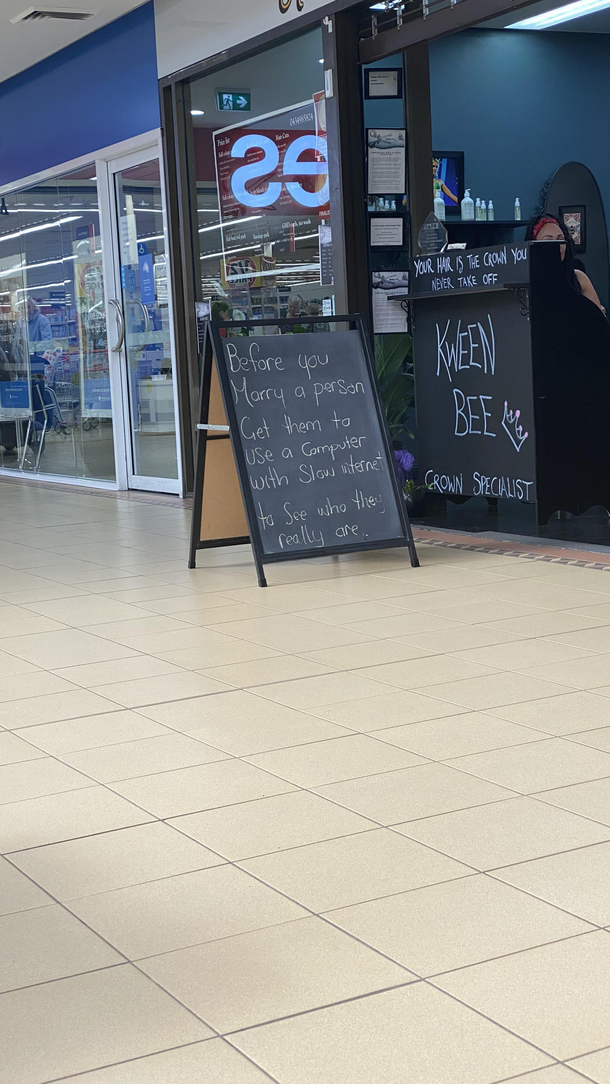 Before you
Marry a person
Get them to
use a Computer
with Slow internet
to See who they
really are.
YOUR HAIR IS THE CROWN YOU
NEVER TAKE OFF
KWEEN
BEE
CROWN SPECIALIST
Price list
Hair Cuts